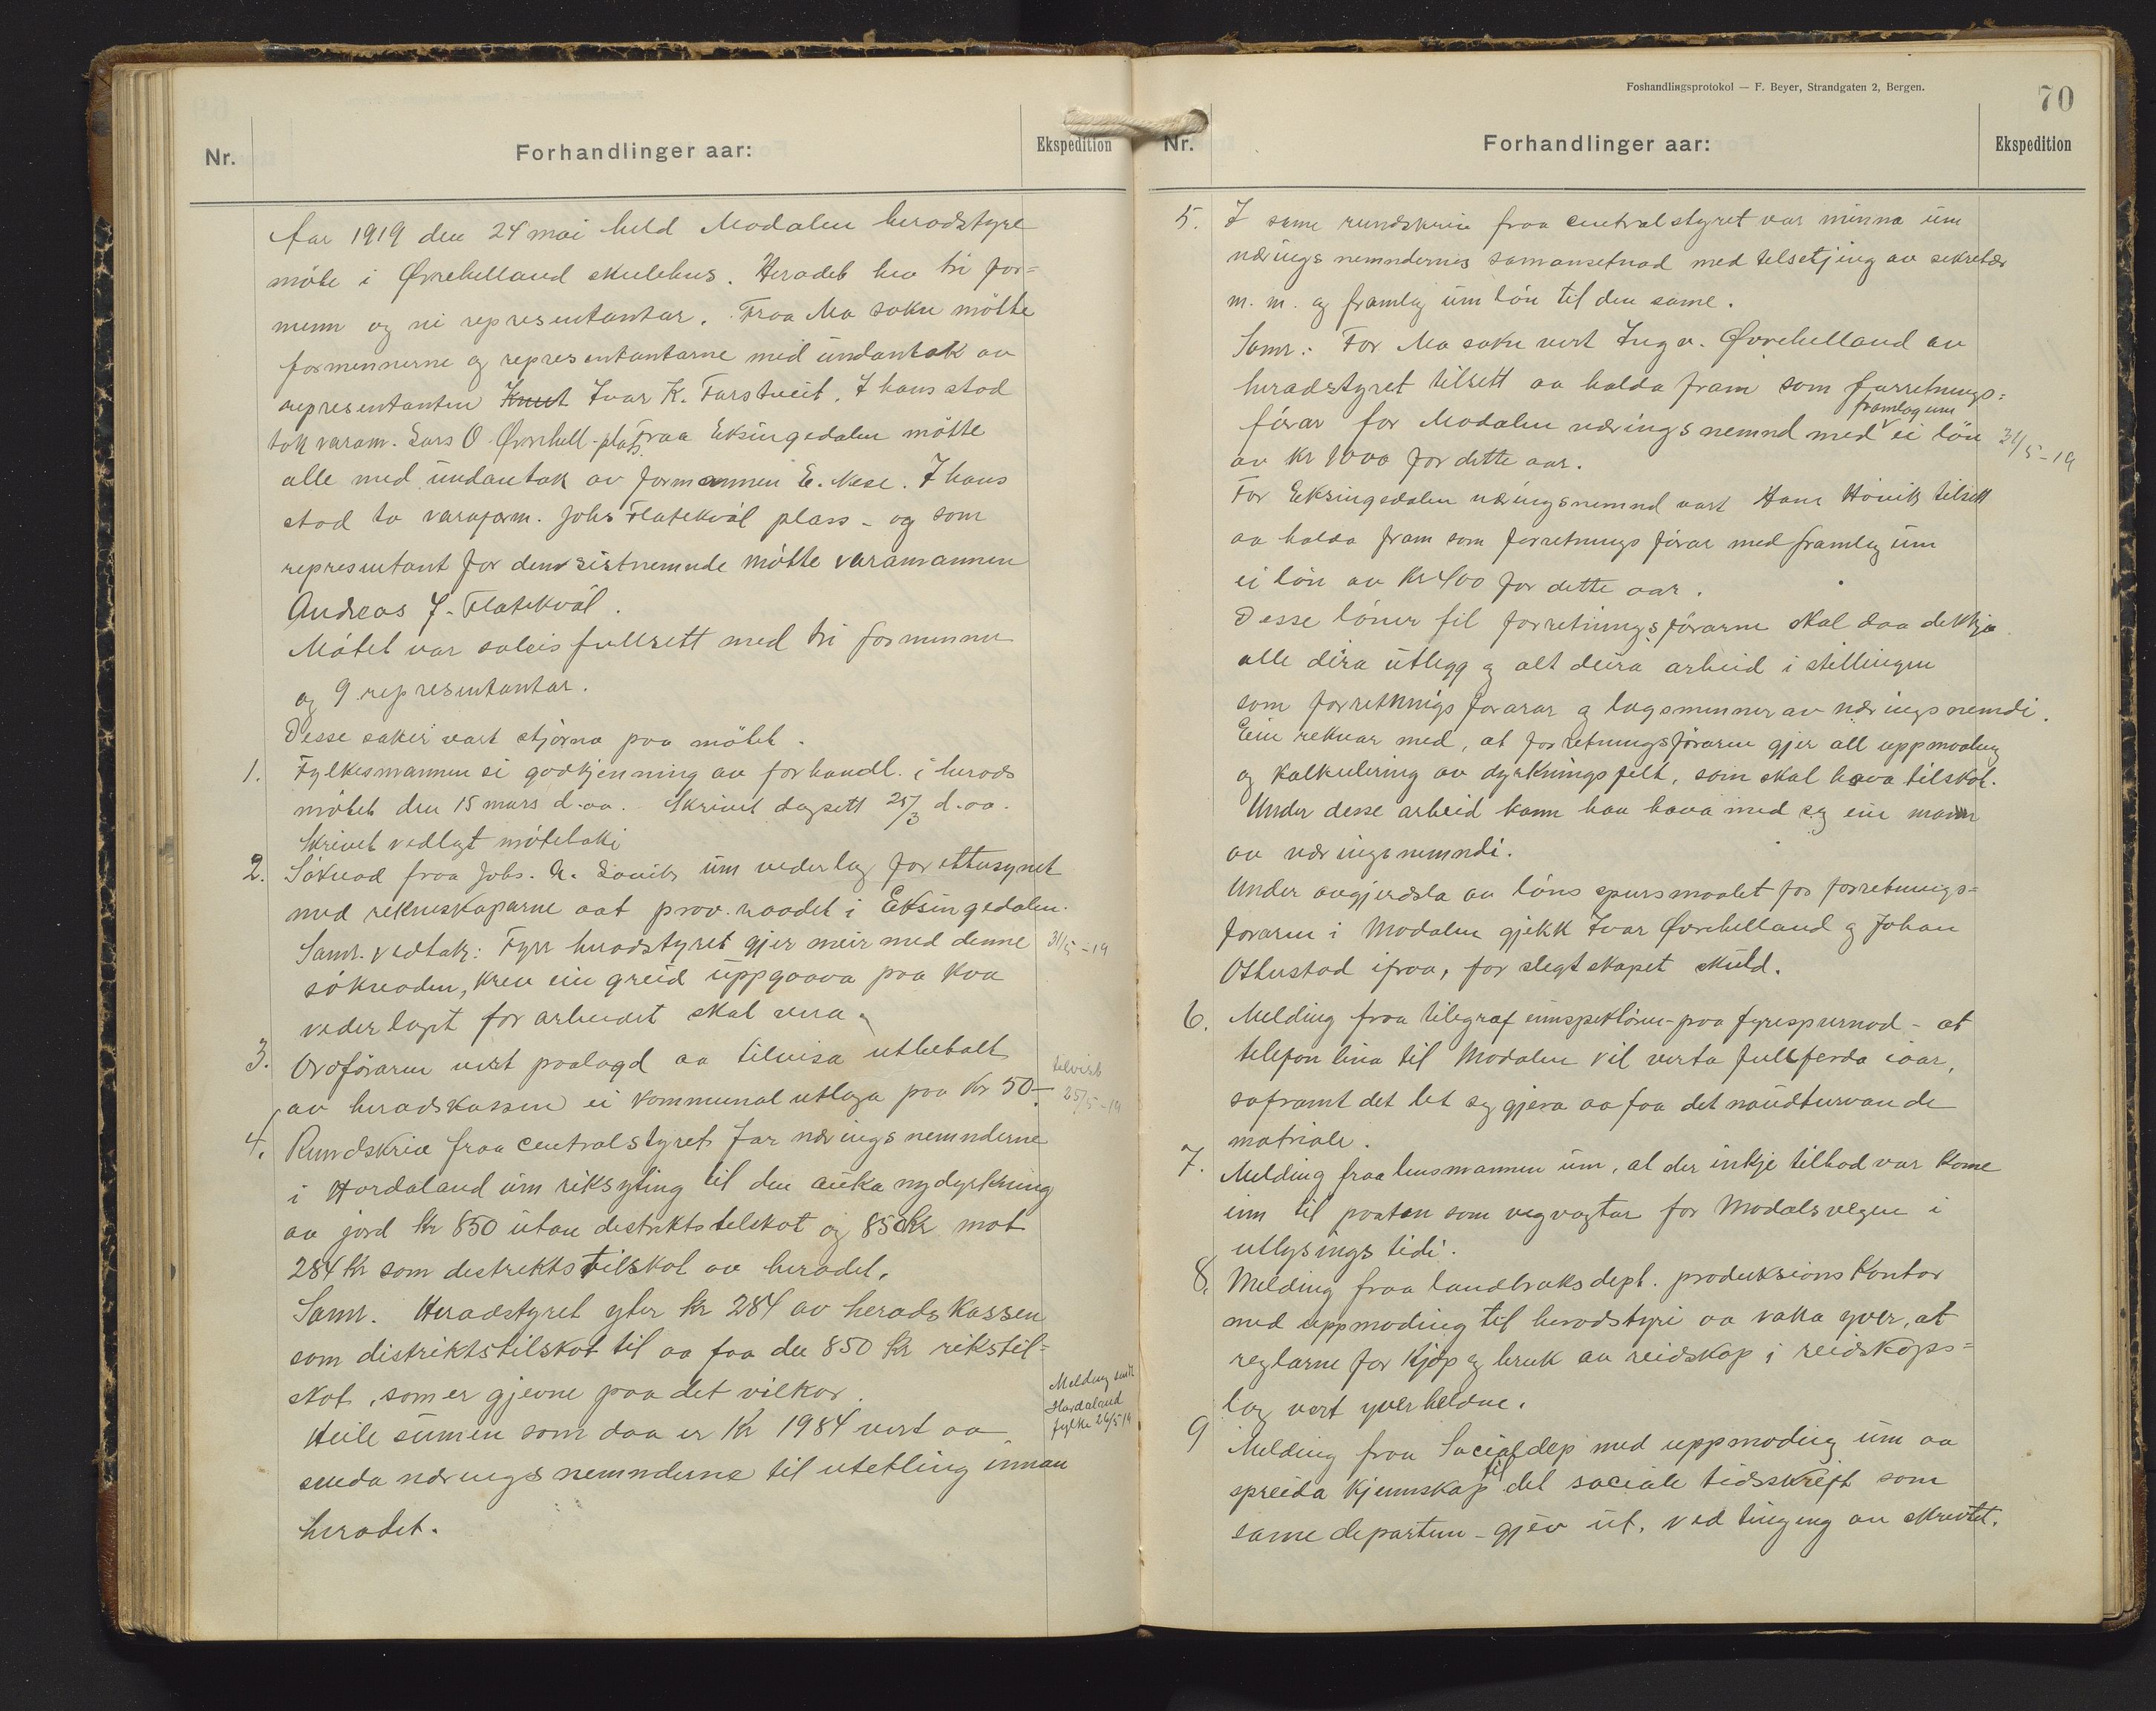 Nr.
Forhandlinger aar:
Ekspedition
Aar 1919 den 24 mai held Modalen heradstyre
möte i Øvrehelland skulehus. Heradet hev tri for=
menn og ni representantar. Fraa Mo sokn mötte
formennerne og representantarne med undantak av
representanten Knut Ivar K. Farstveit. I hans stad
tok varam. Lars O. Øvrehell. plass. Fraa Eksingedalen mötte
alle med undantak av formannen E. Nese. I hans
stad to varaform. Johs Flatekvål plass - og som
representant for den sistnemnde mötte varamannen
Andreas J. Flatekvål.
Mötet var soleis fullsett med tri formenner
og 9 representantar.
Desse saker vart stjorna paa mötet.
1. Fylkesmannen si godkjenning av forhandl. i herads
mötet den 15 mars d.aa. Skrivet dagsett 25/3 d.aa.
Skrivet vedlagt möteboki
2. Söknad fraa Johs. N. Lavik um vederlag for ettersynet
med rekneskaparne aat prov. raadet i Eksingedalen.
Samr. vedtak: Fyrr heradstyret gjer meir med denne 31/5-19
söknaden, krev ein greid uppgaava paa kva
vederlaget for arbeidet skal vera.
3. Ordföraren vert paalagd aa tilvisa utbetalt tilvist
av heradskassen ei kommunal utlaga paa Kr 50- 25/5-19
4. Rundskriv fraa centralstyret for næringsnemnderne
i Hordaland um riksyting til den auka nydyrkning
av jord Kr 850 utan distriktstilskot og 850 Kr mot
284 Kr som destriktstilskot av heradet.
Samr. Heradstyret yter Kr 284 av heradskassen
som distriktstilskot til aa faa de 850 Kr rikstil=
skot, som er gjevne paa det vilkor.
Melding sendt
Hordaland
fylke 26/5 19
Heile sumen som daa er Kr 1984 vert aa
senda næringsnemnderne til utetling innan
heradet.
Foshandlingsprotokol — F. Beyer, Strandgaten 2, Bergen.
70
Nr.
Forhandlinger aar:
Ekspedition
5. I same rundskriv fraa centralstyret var minna um
næringsnemndernes samansetnad med tilsetjing av sekretær
m. m. og framlag um lön til den same.
Samr.: For Mo sokn vert Ingv. Øvrehelland av
heradstyret tilsett aa halda fram som forretnings=
förar for Modalen næringsnemnd med framlag um ei lön 31/5-19
av Kr 1000 for dette aar.
For Eksingedalen næringsnemnd vart Hans Hövik tilsett
aa halda fram som forretningsförar med framlag um
ei lön av Kr 400 for dette aar.
Desse löner til forretningsförarne skal daa dekkja
alle deira utlegg og alt deira arbeid i stillingen
som forretningsförarar og lagsmenner av næringsnemdi.
Ein reknar med, at forretningsförarne gjer all uppmaaling
og kalkulering av dyrkningsfelt, som skal hava tilskot.
Under desse arbeid kann han hava med seg ein mann
av næringsnemndi.
Under avgjerdsla av lönsspursmaalet for forretnings=
föraren i Modalen gjekk Ivar Øvrehelland og Johan
Otterstad ifraa, for slegtskapet skuld.
6. Melding fraa telegrafinnspektören - paa fyrespurnad - at
telefonlina til Modalen vil verta fullferda iaar,
saframt det let seg gjera aa faa det naudturvande
matriale.
7. Melding fraa lensmannen um, at der inkje tilbod var kome
inn til posten som vegvogtar for Modalsvegen i
utlysingstidi.
8. Melding fraa landbruksdept. produksionskontor
med uppmoding til heradstyri aa vaka yver, at
reglarne for kjøp og bruk av reidskap i reidskaps=
lag vert yverheldne.
9 Melding fraa Socialdep med uppmoding um aa
spreida kjennskap til det sociale tidsskrift som
same departem - gjev ut, ved tinging av skrivtet.